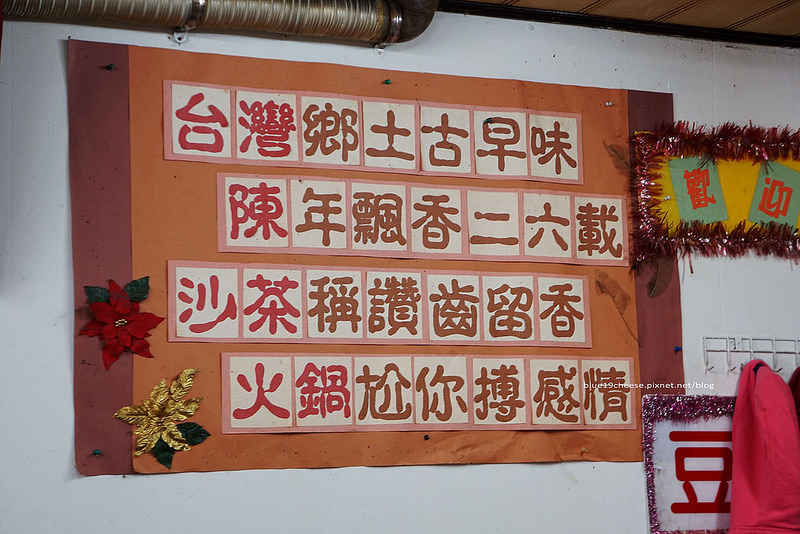 台灣鄉土古早味
陳年飄香二六載
沙茶稱讚齒留香
火鍋尬你搏感情
歡迎
豆
blue19cheese.pixnet.net/blog